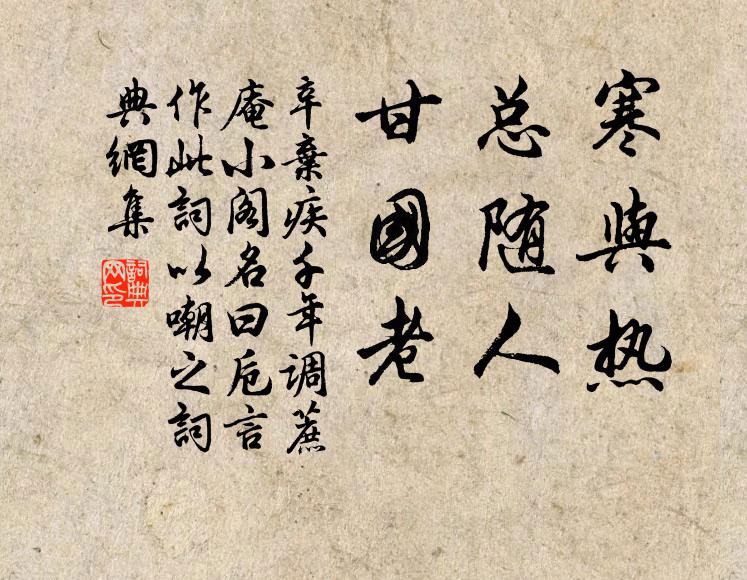 寒與热
总随人
甘國老
辛棄疾千年调蔗
庵小阁名曰卮言
作此詞以嘲之詞
典網集
詞典
网印